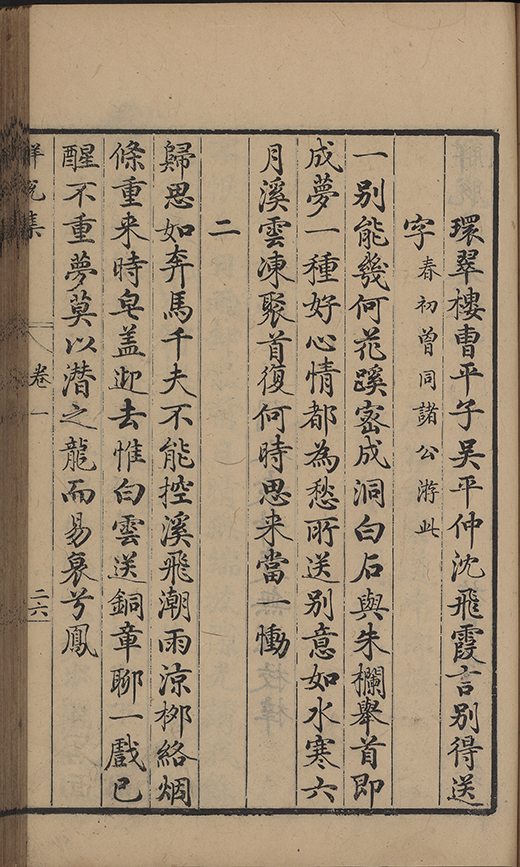 環翠樓曹平子吴平仲沈飛霞言别得送
字春初曾同諸公游此
一别能幾何花蹊宻成洞白石與朱欄舉首即
成夢一種好心情都為愁所送别意如水寒六
月溪雲凍聚首復何時思来當一慟
二
歸思如奔馬千夫不能控溪飛潮雨涼栁絡烟
條重来時皂盖迎去惟白雲送銅章聊一戲已
醒不重夢莫以潜之龍而易衰兮鳳
觧脱集
卷一
二六